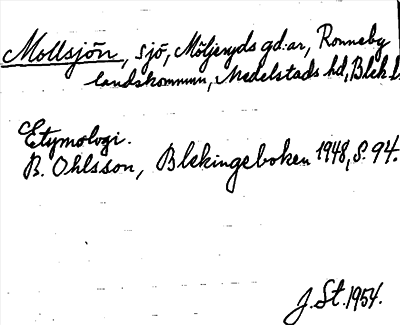 Mollsjön, sjö, Möljeryds gd:ar, Ronneby
landskommun, Medelstads hd, Blek l.
Etymologi.
B. Ohlsson, Blekingeboken 1948, S. 94.
J. St. 1954.